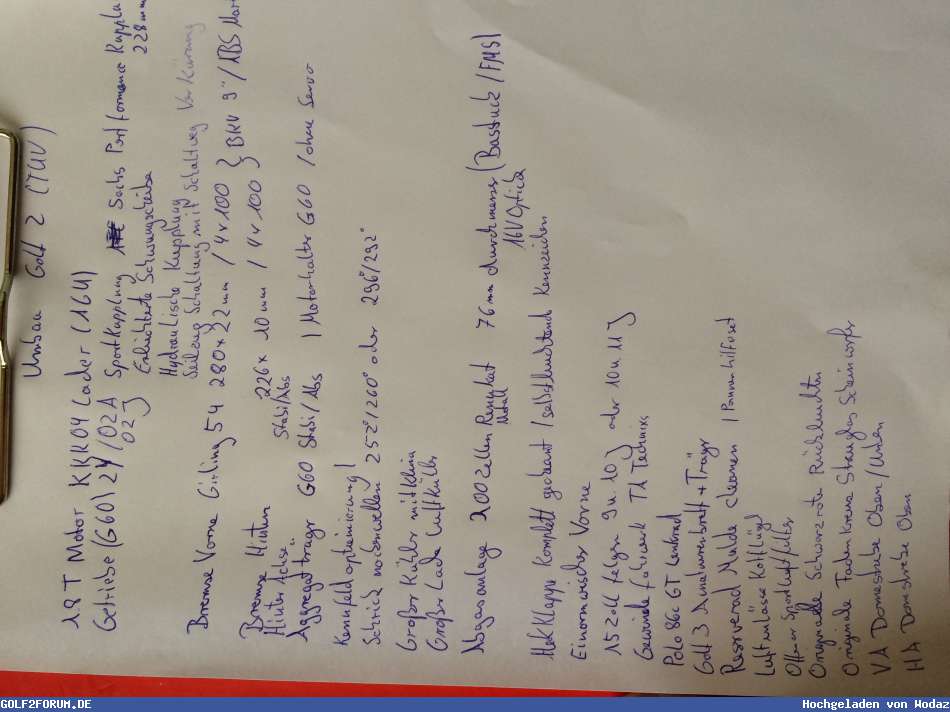 Umbau Golf 2 (TÜV)
1.8T Motor KKK04 Lader (1.6U)
Getriebe (G60) 2Y/02A Sportkupplung Sachs Performance Kupplu
02J Erleichterte Schwungscheibe 228mm
Hydraulische Kupplung
Seilzug Schaltung mit Schaltweg Verkürzung
Bremse Vorne Girling 54 280x22mm /4x100 } BKV 9"/ABS
Bremse Hinten 226x 10mm /4x100
Hinter Achse Stabi/Abs
Aggregatträger G60 Stabi/Abs /Motorhalter G60 /ohne Servo
Kennfeldoptimierung/
Schrick nockenwellen 252°/260° oder 256°/252°
Großer Kühler mit Klima
Großer Lade luftkühler
Abgasanlage 200 Zellen Rennkat 76mm durchmesser (Bastuck/FMS)
Metall 16V Optick
HeckKlappe Komplett gecleant /selbstleuchtend Kennzeichen
Einarmwischer Vorne
15 Zoll felgen 9u.10J oder 10u.11J
Gewinde fahrwerk TA Technix
Polo 86c GT Lenkrad
Golf 3 Armaturenbrett + Träger
Reserverad Mulde cleanen /Pannenhilfeset
Luftauslässe Kotflügel
Offener Sportluftfilter
Originale Schwarzrote Rückleuchten
Originale Fadenkreuz Streuglas Scheinwerfer
VA Domstrebe Oben/Unten
HA Domstrebe Oben
GOLF2FORUM.DE
Hochgeladen von Wodaz